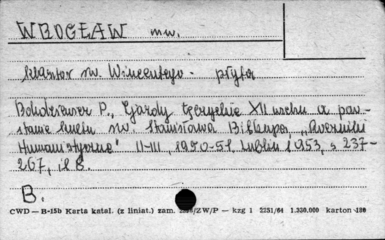 WROCŁAW m.w.
klasztor św. Wincentego - płyta
Bohdziewicz P., Zjazdy łęczyckie XII wieku a pow-
stanie kultu św. Stanisława Biskupa, „Roczniki
Humanistyczne" II-III, 1950-51, Lublin 1953, s 237-
267, il 8.
B.
CWD — B-15b Karta katal. (z liniat.) zam. /ZW/P — kzg 1 2251/64 1.330.000 karton